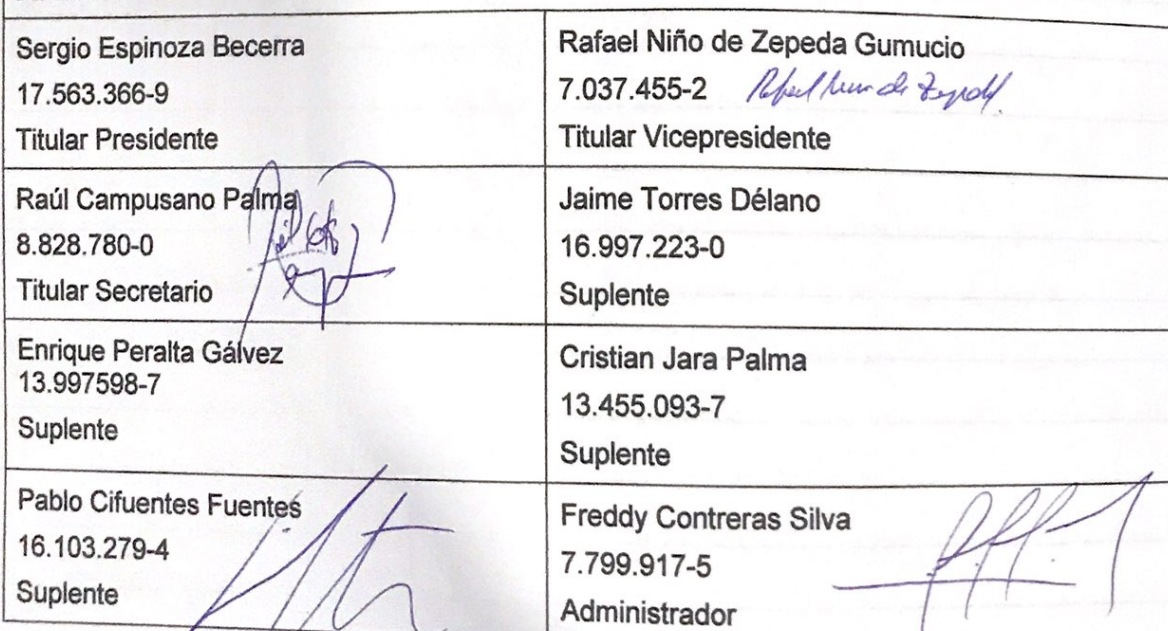 Sergio Espinoza Becerra
17.563.366-9
Titular Presidente
Rafael Niño de Zepeda Gumucio
7.037.455-2
Titular Vicepresidente
Raúl Campusano Palma
8.828.780-0
Titular Secretario
Jaime Torres Délano
16.997.223-0
Suplente
Enrique Peralta Gálvez
13.997598-7
Suplente
Cristian Jara Palma
13.455.093-7
Suplente
Pablo Cifuentes Fuentes
16.103.279-4
Suplente
Freddy Contreras Silva
7.799.917-5
Administrador